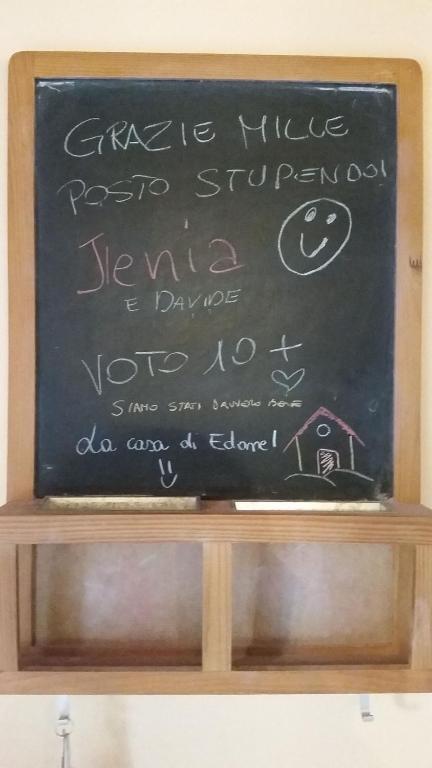 GRAZIE MILLE
POSTO STUPENDO!
Jlenia
E DAVIDE
VOTO 10+
SIAMO STATI DAVVERO BENE
La casa di Edame!